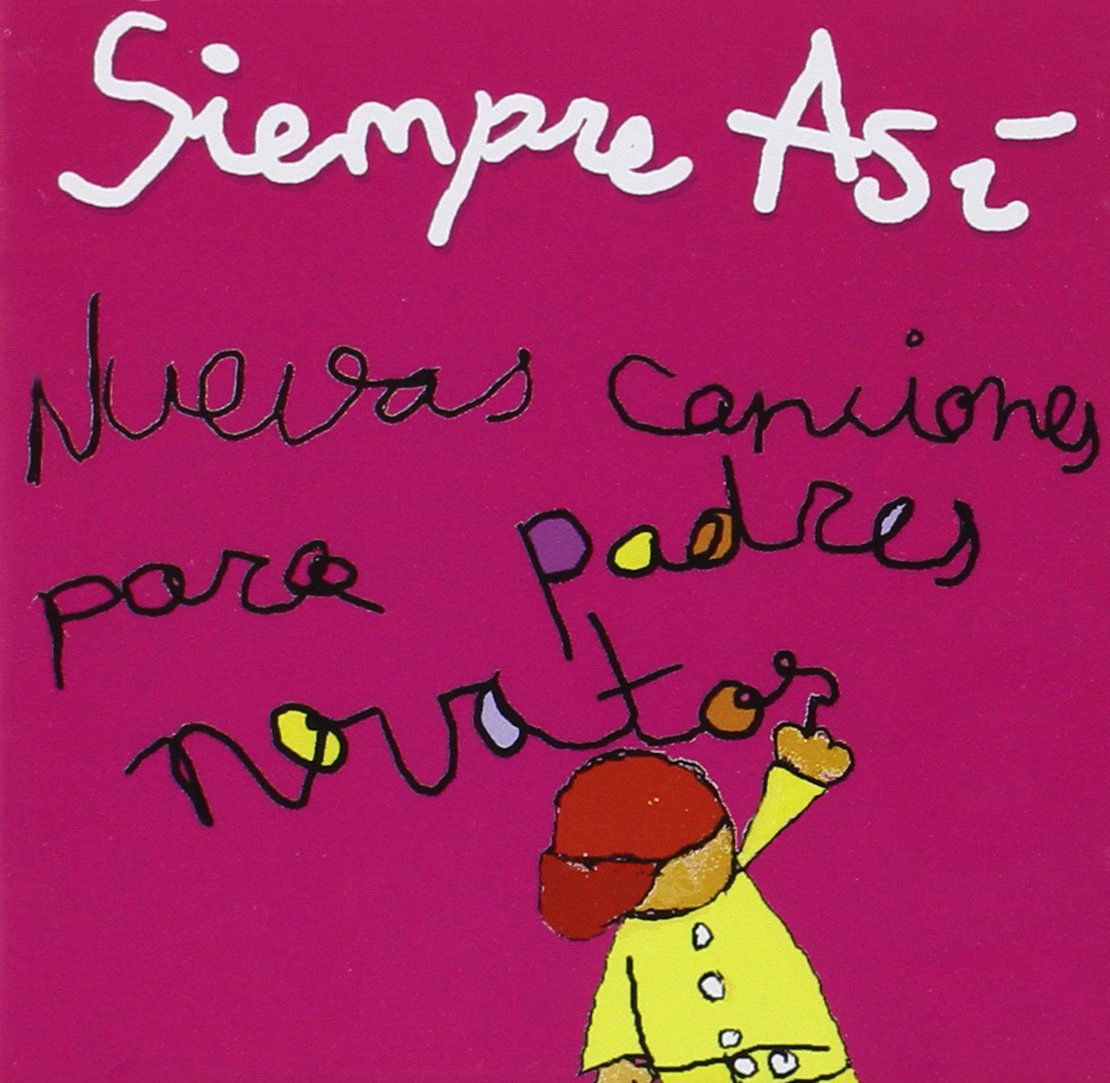 Siempre Así
Nuevas canciones
para padres
novatos